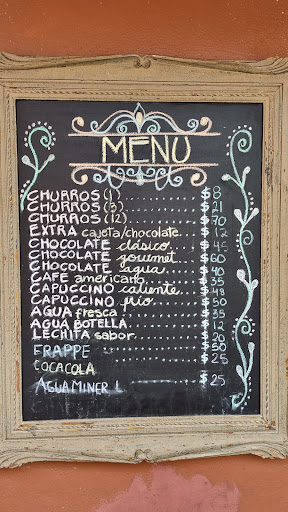 MENU
CHURROS (1) $ 8
CHURROS (3) $ 21
CHURROS (12) $ 70
EXTRA cajeta/chocolate $ 12
CHOCOLATE clásico $ 45
CHOCOLATE gourmet $ 60
CHOCOLATE agua $ 40
CAFE americano $ 35
CAPUCCINO caliente $ 48
CAPUCCINO frio $ 50
AGUA fresca $ 35
AGUA BOTELLA $ 12
LECHITA sabor $ 20
FRAPPE $ 50
COCACOLA $ 25
AGUA MINER L $ 25